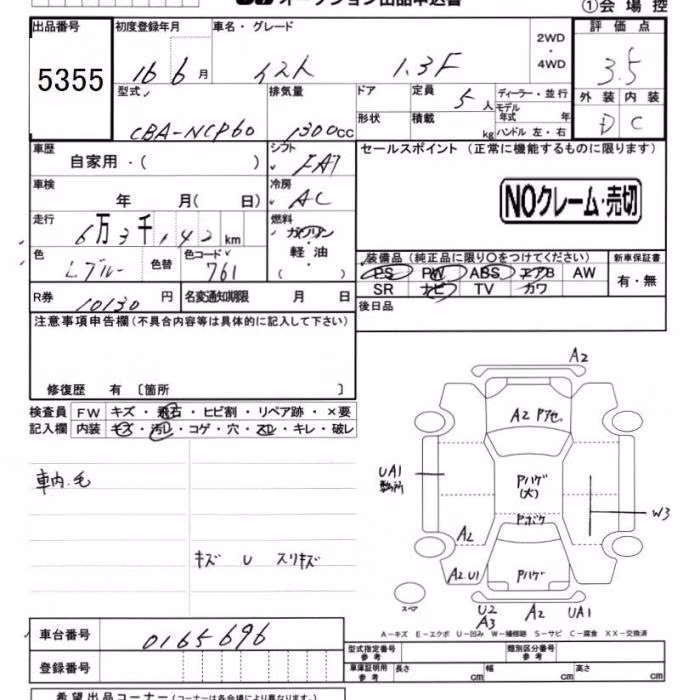 オークション出品申込書
①会場控
出品番号
5355
初度登録年月
16 6 月
車名・グレード
イスト 1.3F
2WD
・
4WD
評価点
3.5
型式
CBA-NCP60
排気量
1300cc
ドア
定員
5人
ディーラー・並行
形状
積載
kg
モデル年式 年
ハンドル 左・右
外装 内装
D C
車歴
自家用・( )
シフト
FAT
セールスポイント (正常に機能するものに限ります)
NOクレーム・売切
車検
年 月( 日)
冷房
AC
走行
6万3千142km
燃料
ガソリン
軽油
( )
色
Lブルー
色替
色コード
761
装備品 (純正品に限り〇をつけてください)
新車保証書
PS PW ABS エアB AW
SR ナビ TV カワ
有・無
R券
10130 円
名変通知期限 月 日
後日品
注意事項申告欄 (不具合内容等は具体的に記入して下さい)
修復歴 有 〔箇所 〕
検査員記入欄
FW キズ・飛石・ヒビ割・リペア跡・×要
内装 キズ・汚レ・コゲ・穴・スレ・キレ・破レ
車内.毛
キズ U スリキズ
A2
A2 Pアセ
UA1
Pハゲ
(大)
Pボケ
W3
A2
A2.U1
Pハゲ
スペア
U2
A3
A2
UA1
A-キズ E-エクボ U-凹み W-補修跡 S-サビ C-腐食 XX-交換済
車台番号
0165696
型式指定番号
参考
類別区分番号
参考
登録番号
車庫証明用
参考
長さ cm 幅 cm 高さ cm
希望出品コーナー (コーナーは各会場により異なります。)